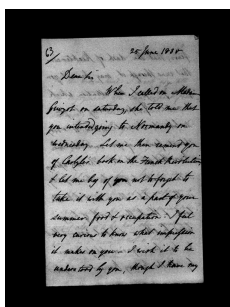 63
25 June 1838
Dear Sir
When I called on Madm
Guizot on saturday, she told me that
you intended going to Normandy on
wednesday. Let me then remind you
of Carlyle's book on the French Revolution
& let me beg of you not to forget to
take it with you as a part of your
summer food & occupation. I feel
very curious to know what impression
it makes on you. I wish it to be
understood by you, though I have my